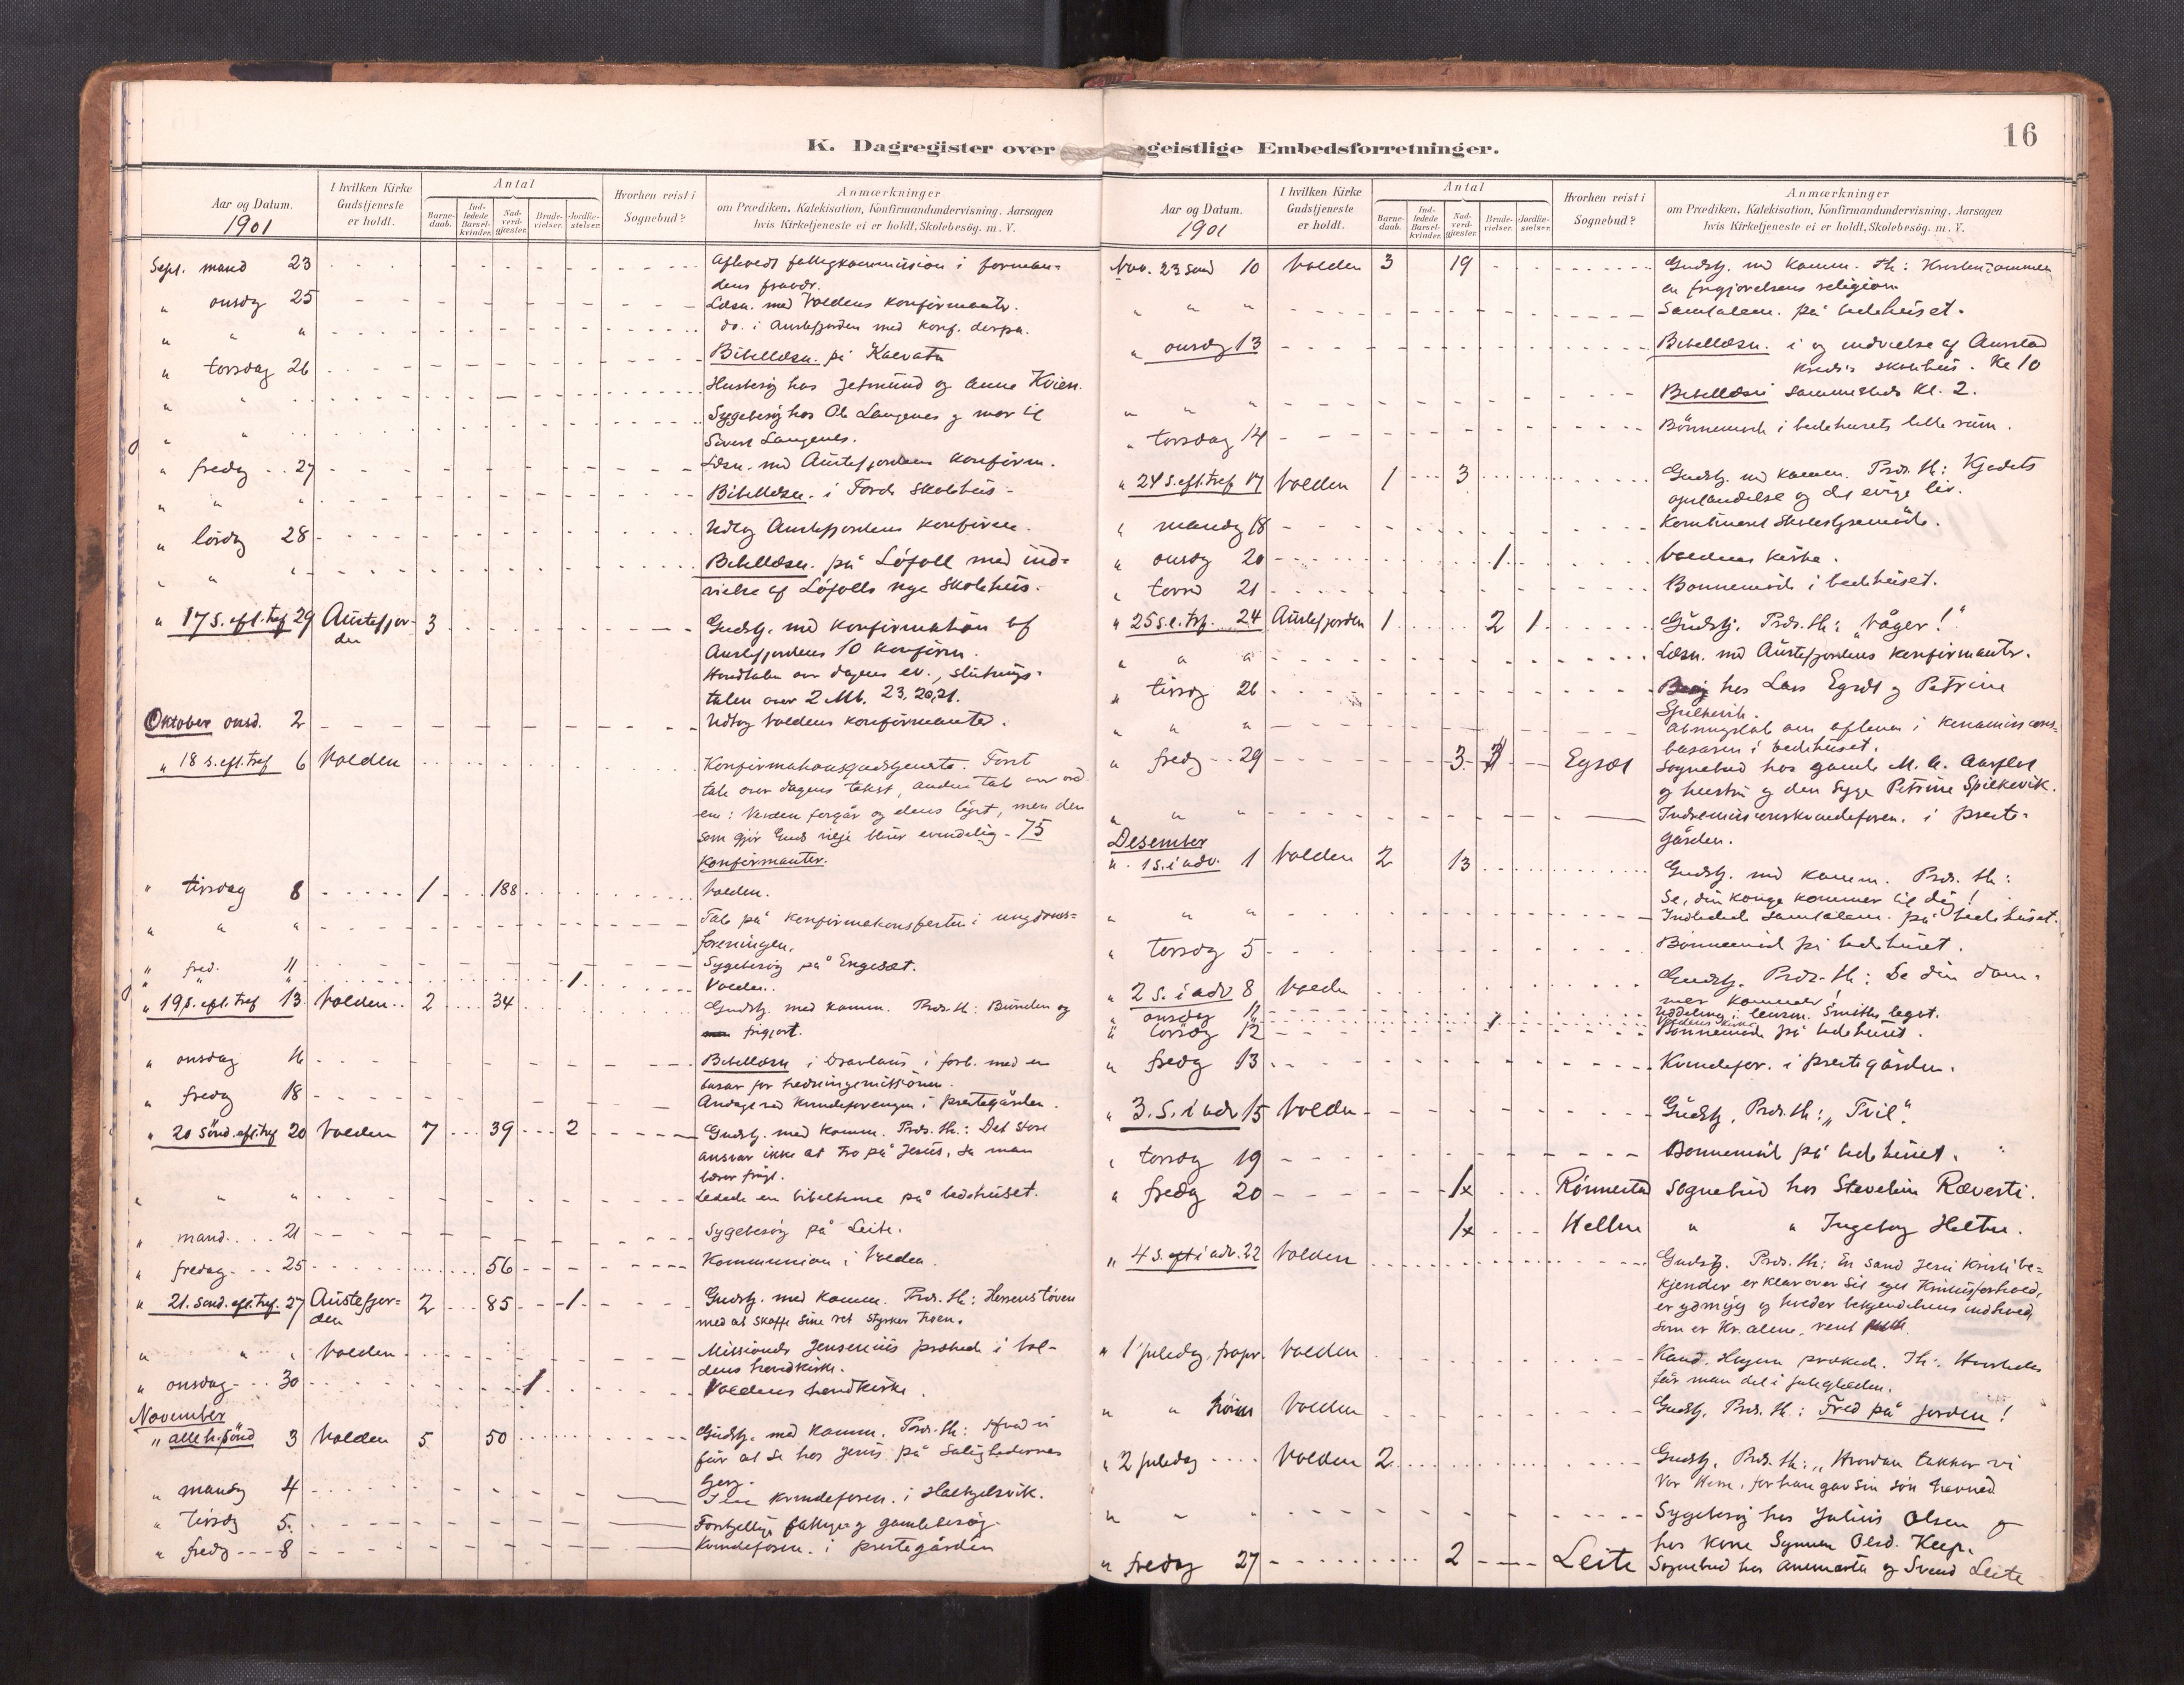 16
K. Dagregister over geistlige Embedsforretninger.
Aar og Datum. 1901
I hvilken Kirke Gudstjeneste er holdt.
Antal
Barnedaab.
Indledede Barselkvinder.
Nadverdgjæster.
Brudevielser.
Jordfæstelser.
Hvorhen reist i Sognebud?
Anmærkninger
om Prædiken, Katekisation, Konfirmandundervisning, Aarsagen
hvis Kirketjeneste ei er holdt, Skolebesög, m. V.
Sept. mand 23 fattigkommission i forman=
dens
" onsdg 25 Læsn. med Voldens konfirmanter.
" " " do. i Austefjorden med konf. derfra.
Bibellæsn. på
" torsdag 26 Husbesög hos Jetmund og Anne Kvien.
" " Sygebesög hos Ole Langenes og mor til
Sivert Langenes.
" fredg 27 Læsn. med Austefjordens konfirm.
" " " Bibellæsn. i skolehus
" lördg 28 Udtog Austefjordens konfirm.
" " " Bibellæsn. på Löfoll med ind=
vielse af Löfolls nye skolehus.
" 17 s. eft. tref 29 Austefjor-
den 3 Gudstj. med konfirmation af
Austefjordens 10 konfirm.
over dagens ev., slutnings-
talen over 2 Mb. 23. 20, 21.
Oktober onsd. 2 Udtog Voldens konfirmanter.
" 18 s. eft. tref 6 Volden Konfirmationsgudstjeneste. Först
tale over dagens tekst, anden tale over ord
ene: Verden forgår og dens lyst, men den
som gjör Guds vilje blir evindelig - 75
konfirmanter.
" tirsdag 8 1 188 Volden.
" " " Tale på konfirmationsfesten i ungdoms=
foreningen.
" fred. 11 Sygebesög på Engeset.
" " 1 Volden.
" 19 s. eft. tref 13 Volden 2 34 Gudstj. med komm. Præd. th: Bunden og
frigjort.
" onsdag 16 Bibellæsn i Dravlaus i forb. med en
basar for hedningemissionen.
" fredg 18 Andagt ved kvindeforeningen i prestegården.
" 20 sönd. eft. tref 20 Volden 7 39 2 Gudstj. med komm. Præd. th.: Det store
ansvar ikke at tro på Jesus, da man
bærer frugt.
" " " Ledede en bibeltime på bedehuset.
" mand. 21 Sygebesög på Leite.
" fredag 25 56 Kommunion i Volden.
" 21. sönd. eft. tref. 27 Austefjor=
den 2 85 1 Gudstj. med komm. Præd. th: Herrens töven
med at skaffe sine ret styrker troen.
" " " Volden Missionær Jensenius prækede i Vol-
dens hovedkirke.
" onsdag 30 1 Voldens hovedkirke.
November
" alle h. sönd 3 Volden 5 50 Gudstj. med komm. Præd. th: Hvad vi
får at se hos Jesus på Salighedernes
berg.
" mandg 4 kvindeforen. i
" tirsdg 5. gamlebesög.
" fredg 8 Kvindeforen. i prestegården
Aar og Datum. 1901
I hvilken Kirke Gudstjeneste er holdt.
Antal
Barnedaab.
Indledede Barselkvinder.
Nadverdgjæster.
Brudevielser.
Jordfæstelser.
Hvorhen reist i Sognebud?
Anmærkninger
om Prædiken, Katekisation, Konfirmandundervisning, Aarsagen
hvis Kirketjeneste ei er holdt, Skolebesög, m. V.
Nov. 23 sönd 10 Volden 3 19 Gudstj. med komm. th: Kristendommen
en frigjörelsens religion
" " Samtalem. på bedehuset.
" onsdg 13 Bibellæsn. i og indvielse af Aurstad
kreds's skolehus. Kl 10
" " " Bibellæsn sammesteds Kl. 2.
" torsdag 14 Bönnemöde i bedehusets lille rum.
" 24 s. eft. tref 17 Volden 1 3 Gudstj. med komm. Præd. th: Kjödets
opstandelse og det evige liv.
" mandg 18 Kombineret skolestyremöde.
" onsdg 20 1 Voldens kirke.
" torsd 21 Bönnemöde i bedehuset.
" 25 s. e. trf. 24 Austefjorden 1 2 1 Gudstj. Præd. th: "Våger!"
" " " Læsn. med Austefjordens konfirmanter.
" tirsdg 26 Besög hos Lars Egset og Petrine
Spilkevik.
" " " Åbningstale om aftenen i kinamissions=
basaren i bedehuset.
" fredg 29 3 Egset Sognebud hos gamle M. A. Aarflot
og hustru og den syge Petrine Spilkevik.
" " " Indremissionskvindeforen. i preste-
gården.
Desember
" 1 s. i adv. 1 Volden 2 13 Gudstj. med komm. Præd. th:
Se, din konge kommer til dig!
" " " Indledede samtalem. på bedehuset.
" torsdg 5 Bönnemöde på bedehuset.
" 2 s. i adv 8 Volden Gudstj. Præd. th: Se din dom-
mer kommer!
" onsdag 11 Uddeling i lensm. Smiths legat.
1 Voldens kirke
" torsdg 12 Bönnemöde på bedehuset.
" fredg 13 Kvindefor. i prestegården.
" 3. s. i adv 15 Volden Gudstj. Præd. th: "Tvil".
" torsdg 19 Bönnemöde på bedehuset.
" fredg 20 1x Rönnestad Sognebud hos Steveline Rævesti.
1x Heltne " " Ingeborg Heltne.
" 4 s. i adv. 22 Volden Gudstj. Præd. th: En sand Jesu Kristi be=
kjender er klar over sit eget Kristusforhold,
er ydmyg og bekjendelsens indhold,
som er Kr. alene, rent
" 1 juledag, fropr. Volden Kand. prækede. Th:
får man del i juleglæden.
" " höim Volden Gudstj. Præd. th: Fred på jorden!
" 2 juledag Volden 2 Gudstj. Præd. th: "Hvordan takker vi
vor Herre, for han gav sin sön herned
" " " Sygebesög hos Julius Olsen og
hos kone Synneve Olsd.
" fredag 27 2 Leite Sognebud hos Anemarta og Svend Leite